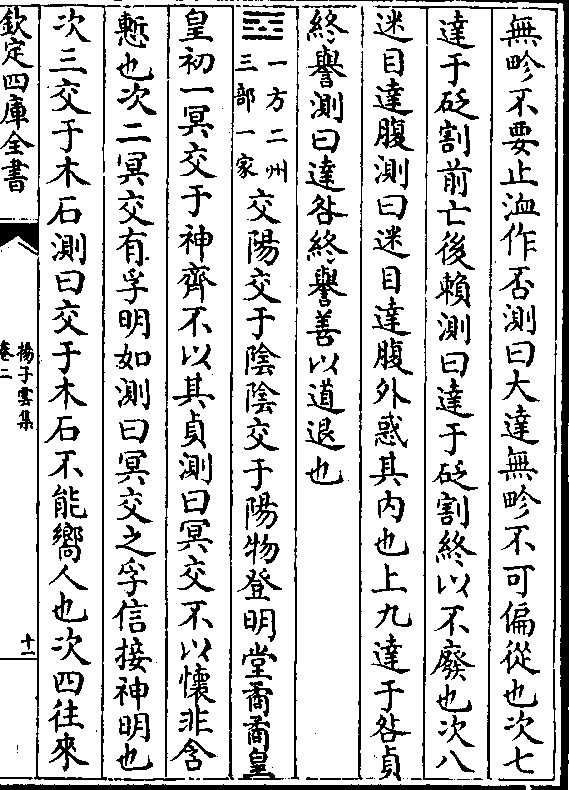 無畛不要止洫作否測曰大達無畛不可偏從也次七
達于砭割前亡後賴測曰達于砭割終以不廢也次八
迷目達腹測曰迷目達腹外惑其内也上九達于咎貞
終譽測曰達咎終譽善以道退也
一方二州
三部一家
交陽交于陰陰交于陽物登明堂矞矞皇
皇初一冥交于神齊不以其貞測曰冥交不以懷非含
慙也次二冥交有孚明如測曰冥交之孚信接神明也
次三交于木石測曰交于木石不能嚮人也次四往來
欽定四庫全書
揚子雲集
卷二
十一